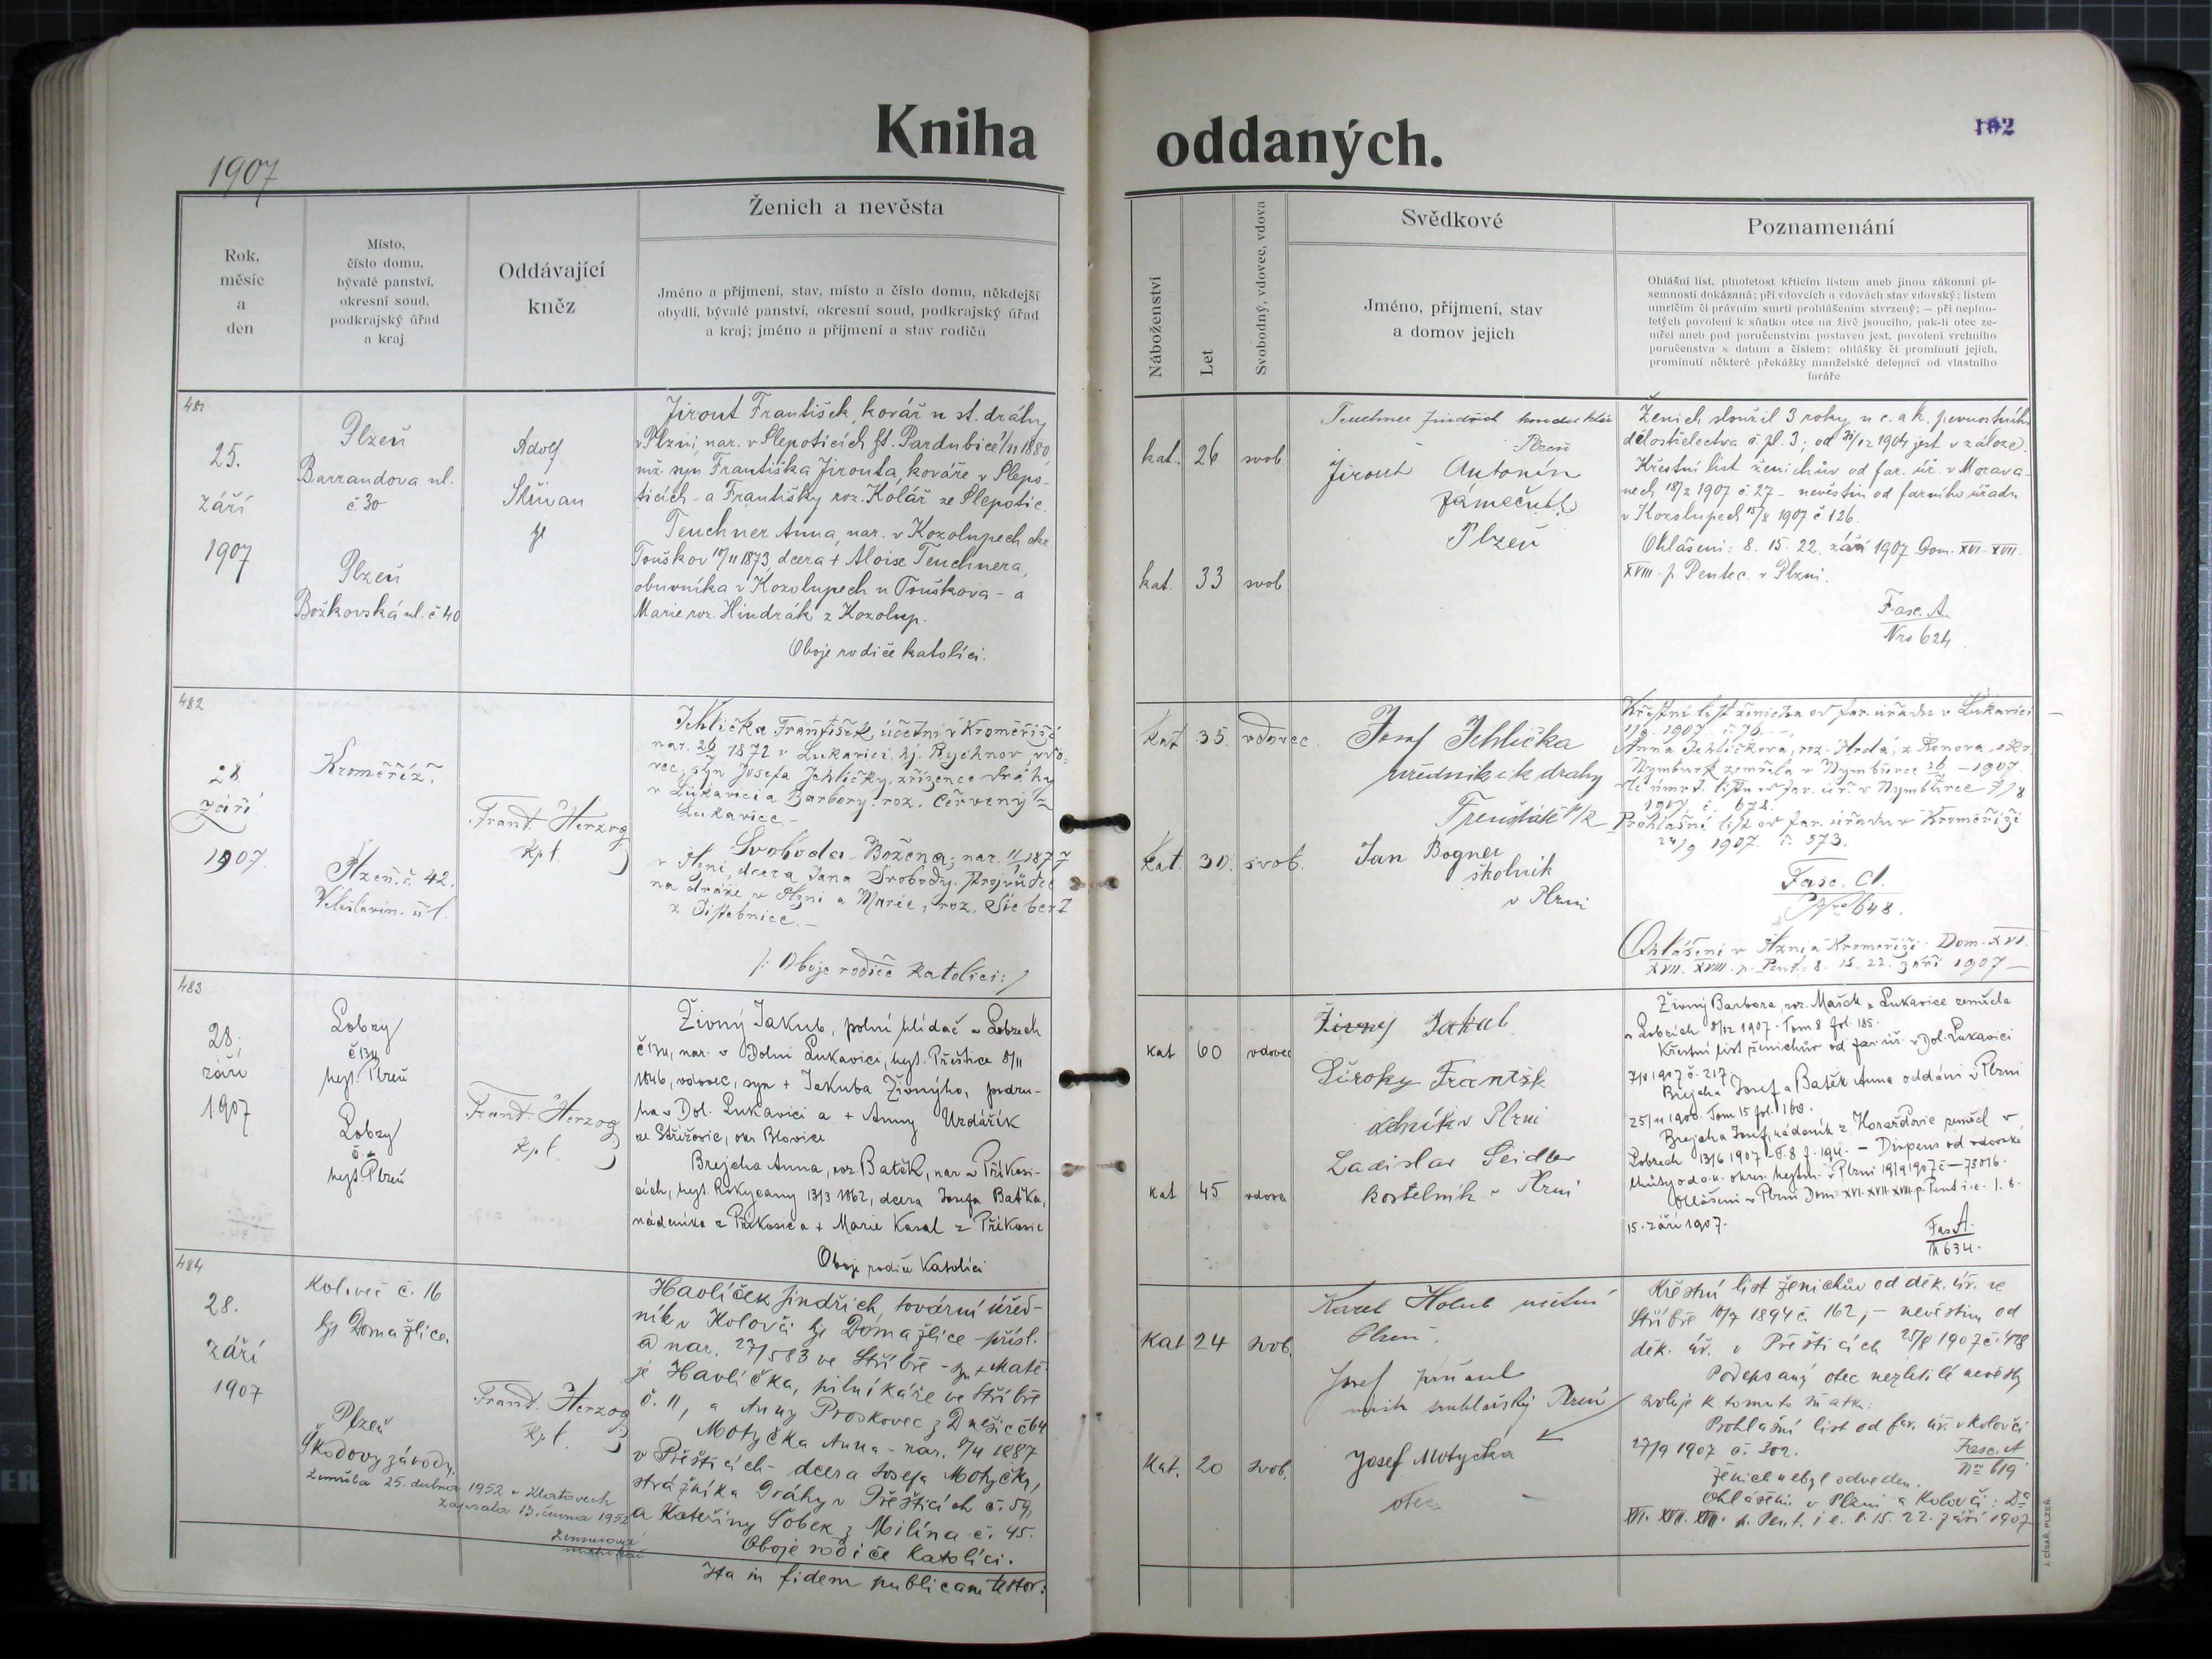 Kniha
oddaných.
102
1907
Rok,
měsíc
a
den
Místo,
číslo domu,
bývalé panství,
okresní soud,
podkrajský úřad
a kraj
Oddávající
kněz
Ženich a nevěsta
Jméno a příjmení, stav, místo a číslo domu, někdejší
obydlí, bývalé panství, okresní soud, podkrajský úřad
a kraj; jméno a příjmení a stav rodičů
Náboženství
Let
Svobodný, vdovec, vdova
Svědkové
Jméno, příjmení, stav
a domov jejich
Poznamenání
Ohlášní list, plnoletost křticím listem aneb jinou zákonní pí-
semností dokázaná; při vdovcích a vdovách stav vdovský; listem
umrlčím či právním smrti prohlášením stvrzený; — při neplno-
letých povolení k sňatku otce na živě jsoucího, pak-li otec ze-
mřel aneb pod poručenstvím postaven jest, povolení vrchního
poručenstva s datum a číslem; ohlášky či prominutí jejich,
prominutí některé překážky manželské delegací od vlastního
faráře
481
25.
září
1907
Plzeň
Barrandova ul.
č. 30
Plzeň
Božkovská ul. č. 40
Adolf
Skřivan
Jirout František, kovář u st. dráhy
v Plzni, nar. v Slepoticích ht. Pardubice 1/11 1880
mž. syn Františka Jirouta, kováře v Slepo-
ticích - a Františky roz. Kolář ze Slepotic.
Teuchner Anna, nar. v Kozolupech okr.
Touškov 10/11 1873, dcera + Aloise Teuchnera,
obuvníka v Kozolupech u Touškova - a
Marie roz. Hindrák z Kozolup.
Oboje rodiče katolíci.
kat. 26 svob.
kat. 33 svob
Teuchner Jindřich konduktér
Plzeň
Jirout Antonín
zámečník
Plzeň
Ženich sloužil 3 roky u c. a k. pevnostního
dělostřelectva č. pl. 3; od 31/12 1904 jest v záloze.
Křestní list ženichův od far. úř. v Morava-
nech 18/2 1907 č. 27 - nevěstin od farního úřadu
v Kozolupech 15/8 1907 č. 126.
Ohlášeni: 8. 15. 22. září 1907 Dom. XVI. XVII.
XVIII. p. Pentec. v Plzni.
Fasc. A.
Nro 624
482
28
září
1907.
Kroměříž.
Plzeň č. 42.
Veleslavín. ul.
Frant. Herzog
kpl.
Jehlička František, účetní v Kroměříži
nar. 1872 v Lukavici, hj. Rychnov, vdo-
vec, syn Josefa Jehličky, zřízence dráhy
v Lukavici a Barbory roz. Červený z
Lukavice. -
Svoboda Božena, nar. 11/1 1877
v Plzni, dcera Jana Svobody, průvodčí
na dráze v Plzni a Marie, roz. Siebert
z Jistebnice. -
/: Oboje rodiče katolíci: /
kat 35. vdovec.
kat. 30. svob.
Josef Jehlička
úředník ck dráhy
Jan Bogner
školník
v Plzni
Křestní list ženicha od far. úřadu v Lukavici
1907 č. 76. -
Anna Jehličková, roz. Hrdá, z Konova, okr.
Nymburk zemřela v Nymburce 1907.
dle úmrt. listu od far. úř. v Nymburce
1907. č. 678.
Prohlášní list od far. úřadu v Kroměříži
24/9 1907. č. 573.
Fasc. A.
Nro 648.
Ohlášeni v Plzni a Kroměříži: Dom. XVI.
XVII. XVIII. p. Pent.: 8. 15. 22. září 1907 —
483
28.
září
1907
Lobzy
č 134
hejt. Plzeň
Lobzy
č. -
hejt. Plzeň
Frant. Herzog
kpl.
Živný Jakub, polní hlídač v Lobzech
č 134, nar. v Dolní Lukavici, hejt. Přeštice 8/11
1846, vdovec, syn + Jakuba Živnýho, podru-
ha v Dol. Lukavici a + Anny Uzdářík
ze Střížovic, okr. Blovice
Brejcha Anna, roz. Batěk, nar. v Příkosi-
cích, hejt. Rokycany 13/3 1862, dcera Josefa Baťka,
nádeníka z Příkosic a + Marie Kasal z Příkosic
Oboje rodiče Katolíci
kat 60 vdovec
kat 45 vdova
Živný Jakub
Široky Frantšk
dělník v Plzni
Ladislav Seidler
kostelník v Plzni
Živný Barbora, roz. Mašek z Lukavice zemřela
v Lobzích 8/12 1907. Tom 8 fol. 185.
Křestní list ženichův od far. úř. v Dol. Lukavici
7/9 1907 č. 217
Brejcha Josef a Batěk Anna oddáni v Plzni
25/11 1900. Tom 15 fol. 160.
Brejcha Josef, nádeník z Horažďovic zemřel v
Lobzech 13/6 1907 - T. 8. f. 194. — Dispens od vdovské
lhůty od c.k. okres. hejtm. v Plzni 19/9 1907 č — 73016.
Ohlášeni v Plzni Dom: XVI. XVII. XVIII. p. Pent i. e. 1. 8.
15. září 1907.
Fas A.
N 634.
484
28.
září
1907
Koloveč č. 16
hjt Domažlice.
Plzeň
Škodovy závody.
Zemřela 25. dubna 1952 v Klatovech
Zapsala 13. června 1952
Frant. Herzog
kpl.
Havlíček Jindřich, tovární úřed-
ník v Kolovči hjt Domažlice - přísl.
a nar. 27/5 83 ve Stříbře - syn + Matě-
je Havlíčka, pilníkáře ve Stříbře
č. 11, a Anny Proskovec z Dnešic č 64
Motyčka Anna - nar. 9/4 1887
v Přešticích - dcera Josefa Motyčky,
strážníka Dráhy v Přešticích č. 59,
a Kateřiny Sobek z Milína č. 45.
Oboje rodiče katolíci.
Ita in fidem publicam testor:
Kat 24 svob.
Kat. 20 svob.
Karel Holub účetní
Plzeň.
Josef
Plzeň
Josef Motyčka
otec
Křestní list ženichův od děk. úř. ve
Stříbře 10/7 1894 č. 162, - nevěstin od
děk. úř. v Přešticích 25/8 1907 č. 428
Podepsaný otec nezletilé nevěsty
svoluje k tomuto sňatku:
Prohlašní list od far. úř. v Kolovči
27/9 1907 č. 302.
Fasc. A
No 619
Ženich nebyl odveden.
Ohlášeni v Plzni a Kolovči: Da
XVI. XVII. XVIII. p. Pent. i. e. 8. 15. 22. září 1907
J. CÍSAŘ, PLZEŇ.